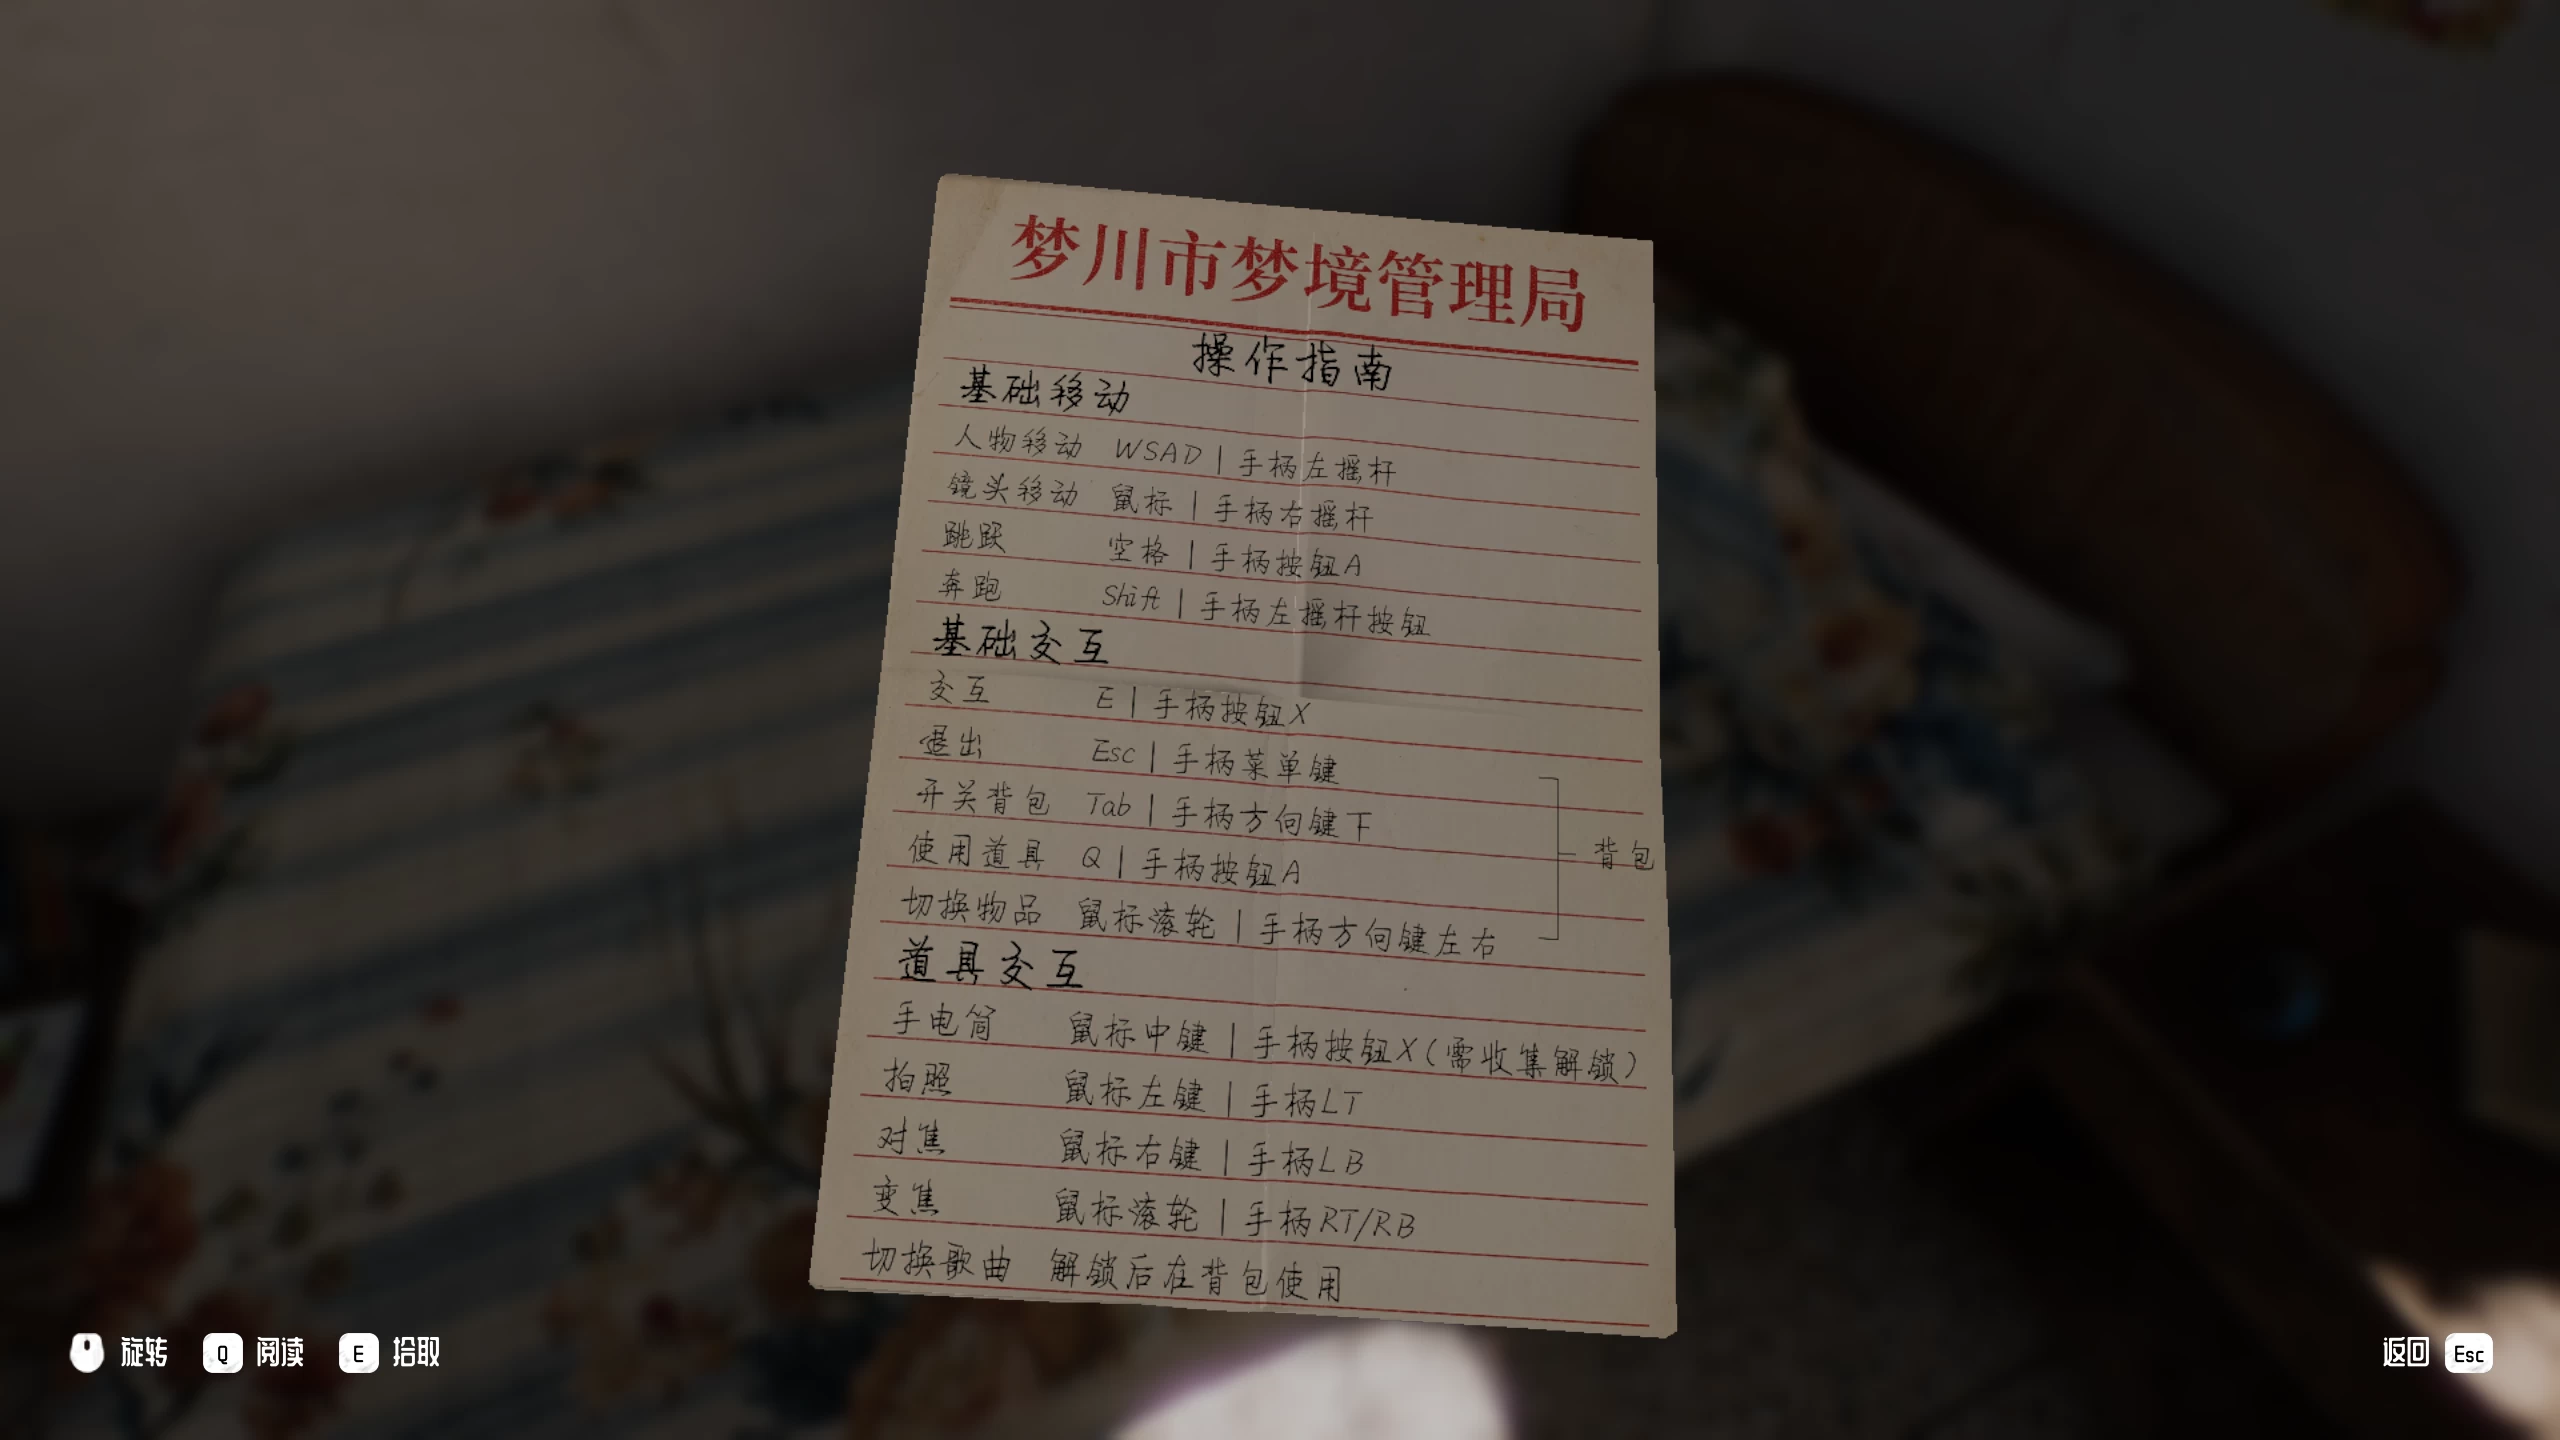 梦川市梦境管理局
操作指南
基础移动
人物移动 WSAD | 手柄左摇杆
镜头移动 鼠标 | 手柄右摇杆
跳跃 空格 | 手柄按钮A
奔跑 Shift | 手柄左摇杆按钮
基础交互
交互 E | 手柄按钮X
退出 Esc | 手柄菜单键
开关背包 Tab | 手柄方向键下
使用道具 Q | 手柄按钮A
背包
切换物品 鼠标滚轮 | 手柄方向键左右
道具交互
手电筒 鼠标中键 | 手柄按钮X(需收集解锁)
拍照 鼠标左键 | 手柄LT
对焦 鼠标右键 | 手柄LB
变焦 鼠标滚轮 | 手柄RT/RB
切换歌曲 解锁后在背包使用
旋转 Q 阅读 E 拾取
返回 Esc